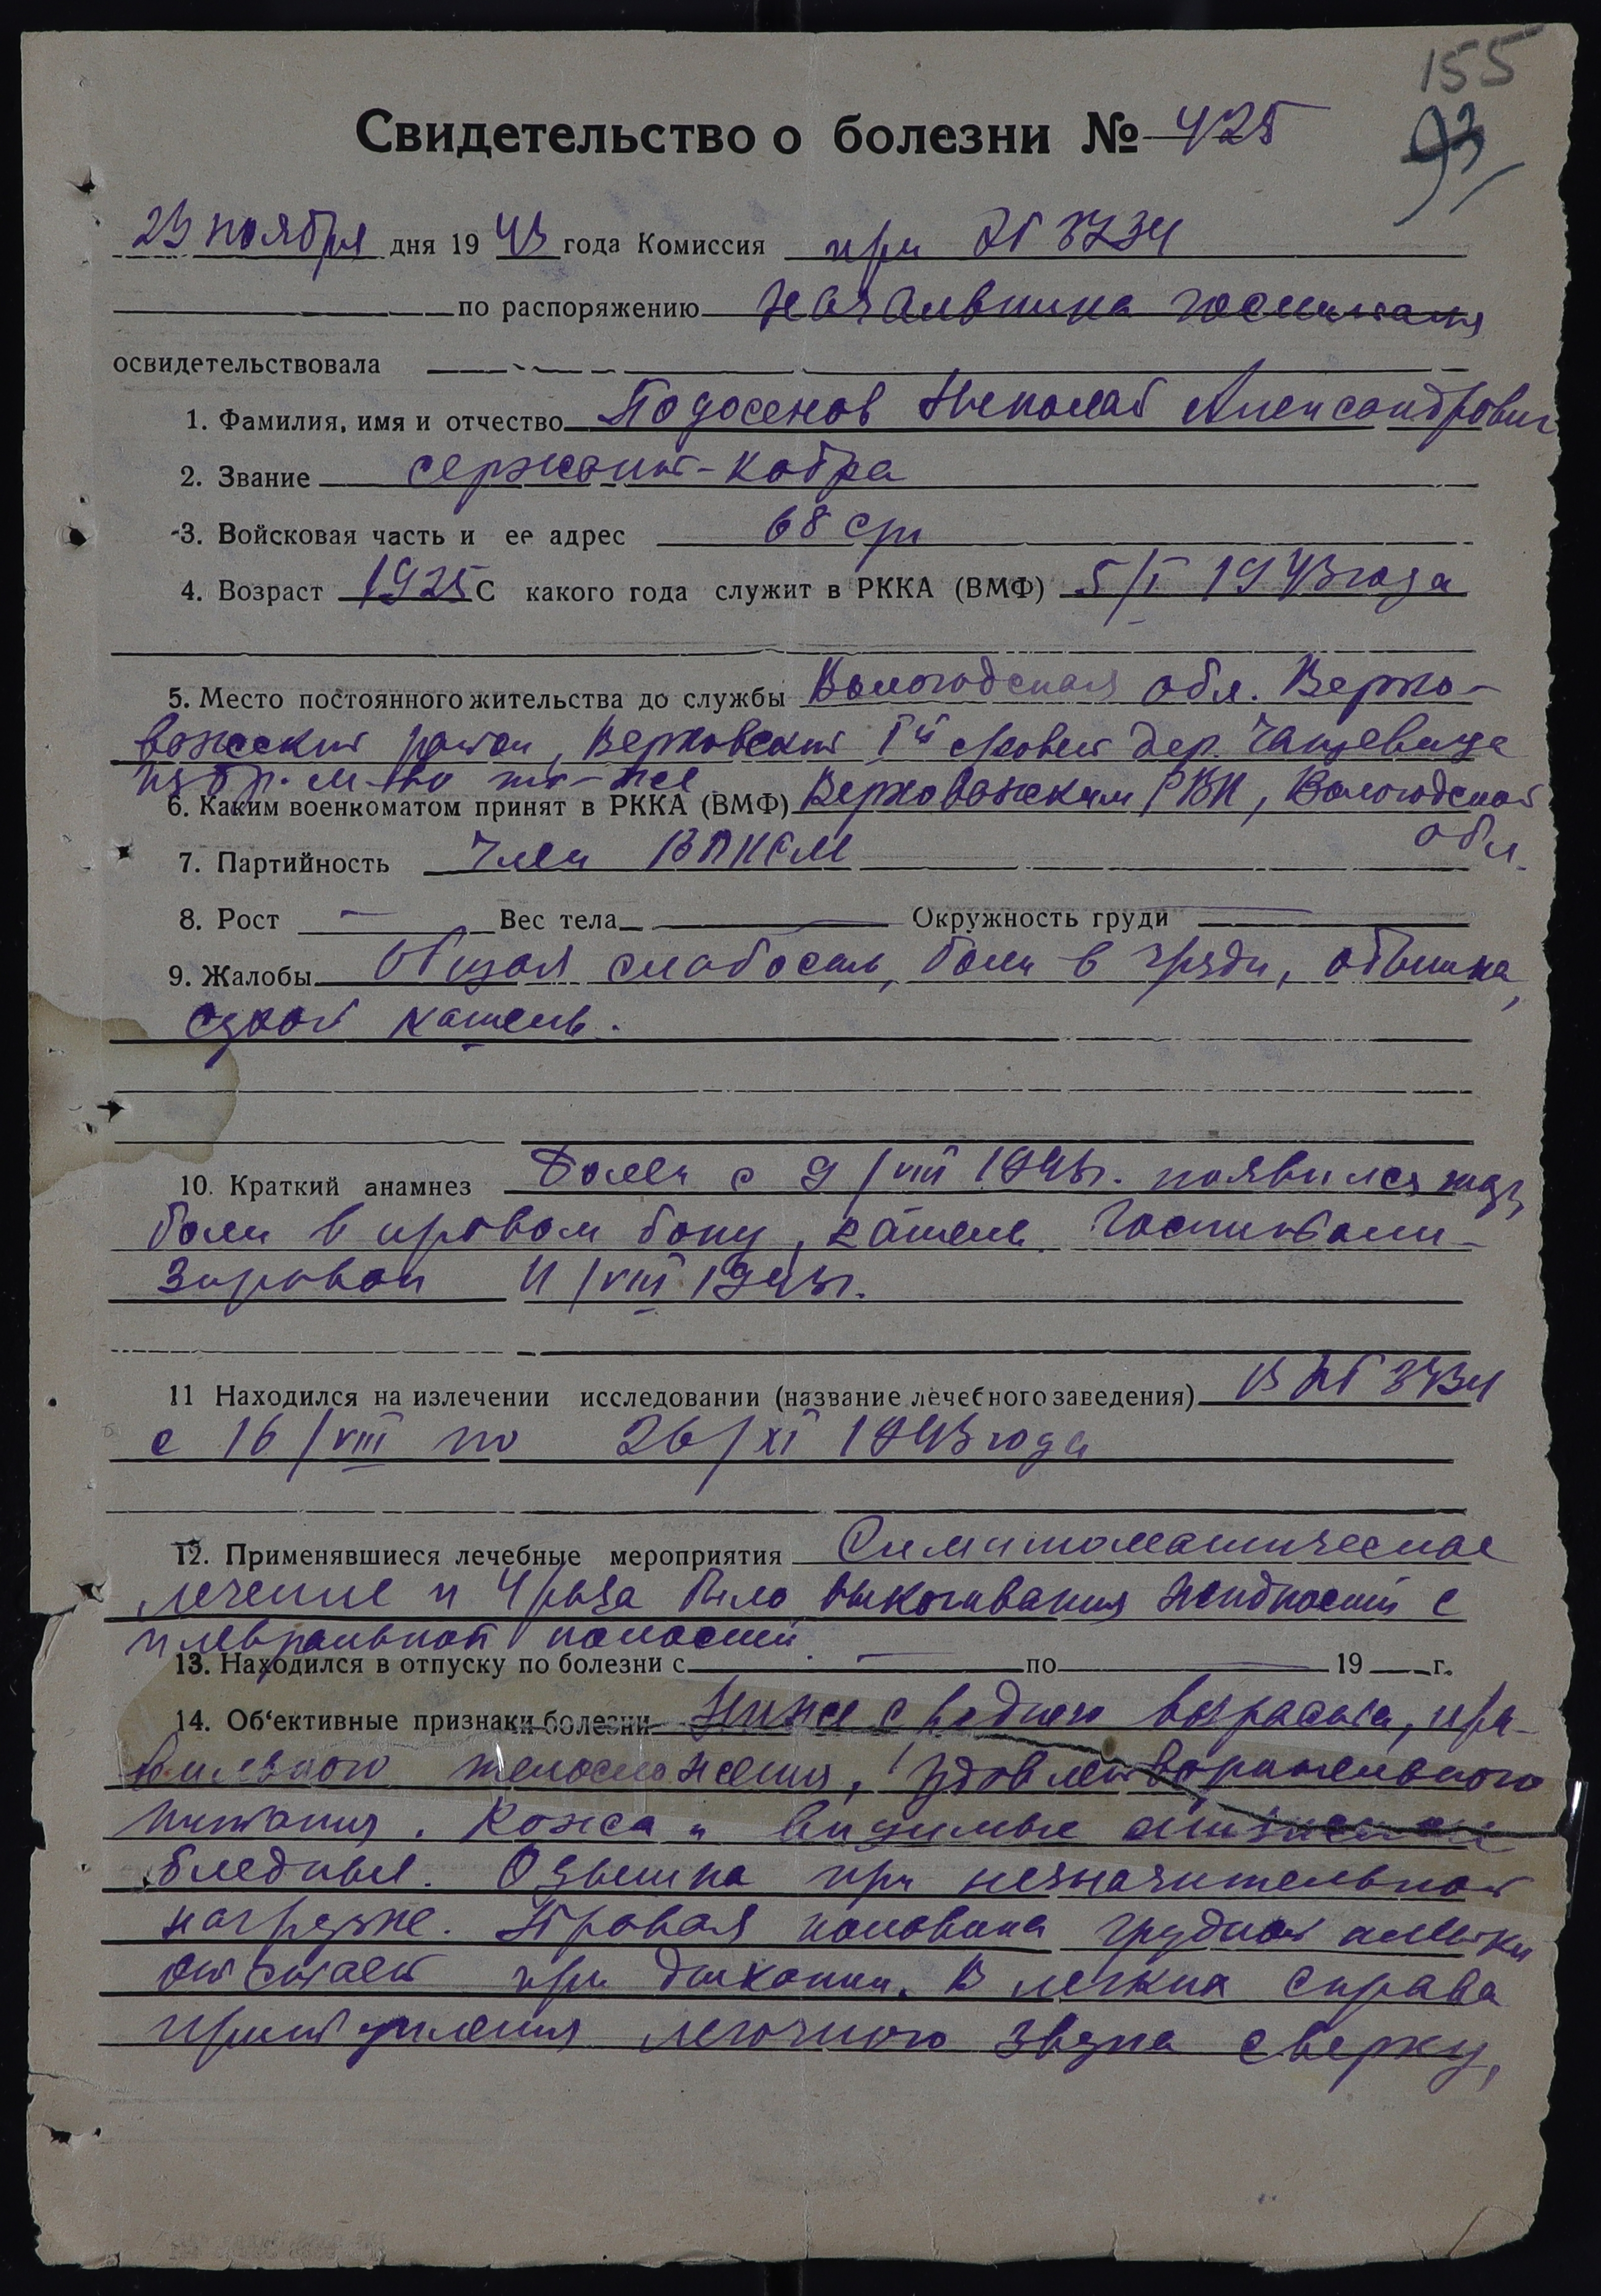 155
93
Свидетельство о болезни № 425
23 ноября дня 1943 года Комиссия при ЭГ 3734
по распоряжению Начальника госпиталя
освидетельствовала
1. Фамилия, имя и отчество Подосенов Николай Александрович
2. Звание сержант-
3. Войсковая часть и ее адрес 68
4. Возраст 1925 С какого года служит в РККА (ВМФ) 5/I 1943 года
5. Место постоянного жительства до службы Вологодская обл. Верхо-
важский район, Верховский с/совет дер.
избр. м-во то-же
6. Каким военкоматом принят в РККА (ВМФ) Верховажским РВК, Вологодской
обл.
7. Партийность Член ВЛКСМ
8. Рост — Вес тела — Окружность груди —
9. Жалобы Общая слабость, боли в груди, одышка,
сухой кашель.
10. Краткий анамнез Болен с 9/VIII 1943г. появился жар,
боли в правом боку, кашель. Госпитали-
зирован 11/VIII 1943г.
11 Находился на излечении исследовании (название лечебного заведения) В ЭГ 3734
с 16/VIII по 26/XI 1943 года
12. Применявшиеся лечебные мероприятия Симптоматическое
лечение и 4 раза было выкачивания жидкости с
плевральной полости
13. Находился в отпуску по болезни с — по — 19 г.
14. Об'ективные признаки болезни Ниже среднего возраста, пра-
вильного телосложения, удовлетворительного
питания. Кожа и видимые слизистые
бледные. Одышка при незначительной
нагрузке. Правая половина грудной клетки
отстает при дыхании. В легких справа
притупления легочного звука сверху,